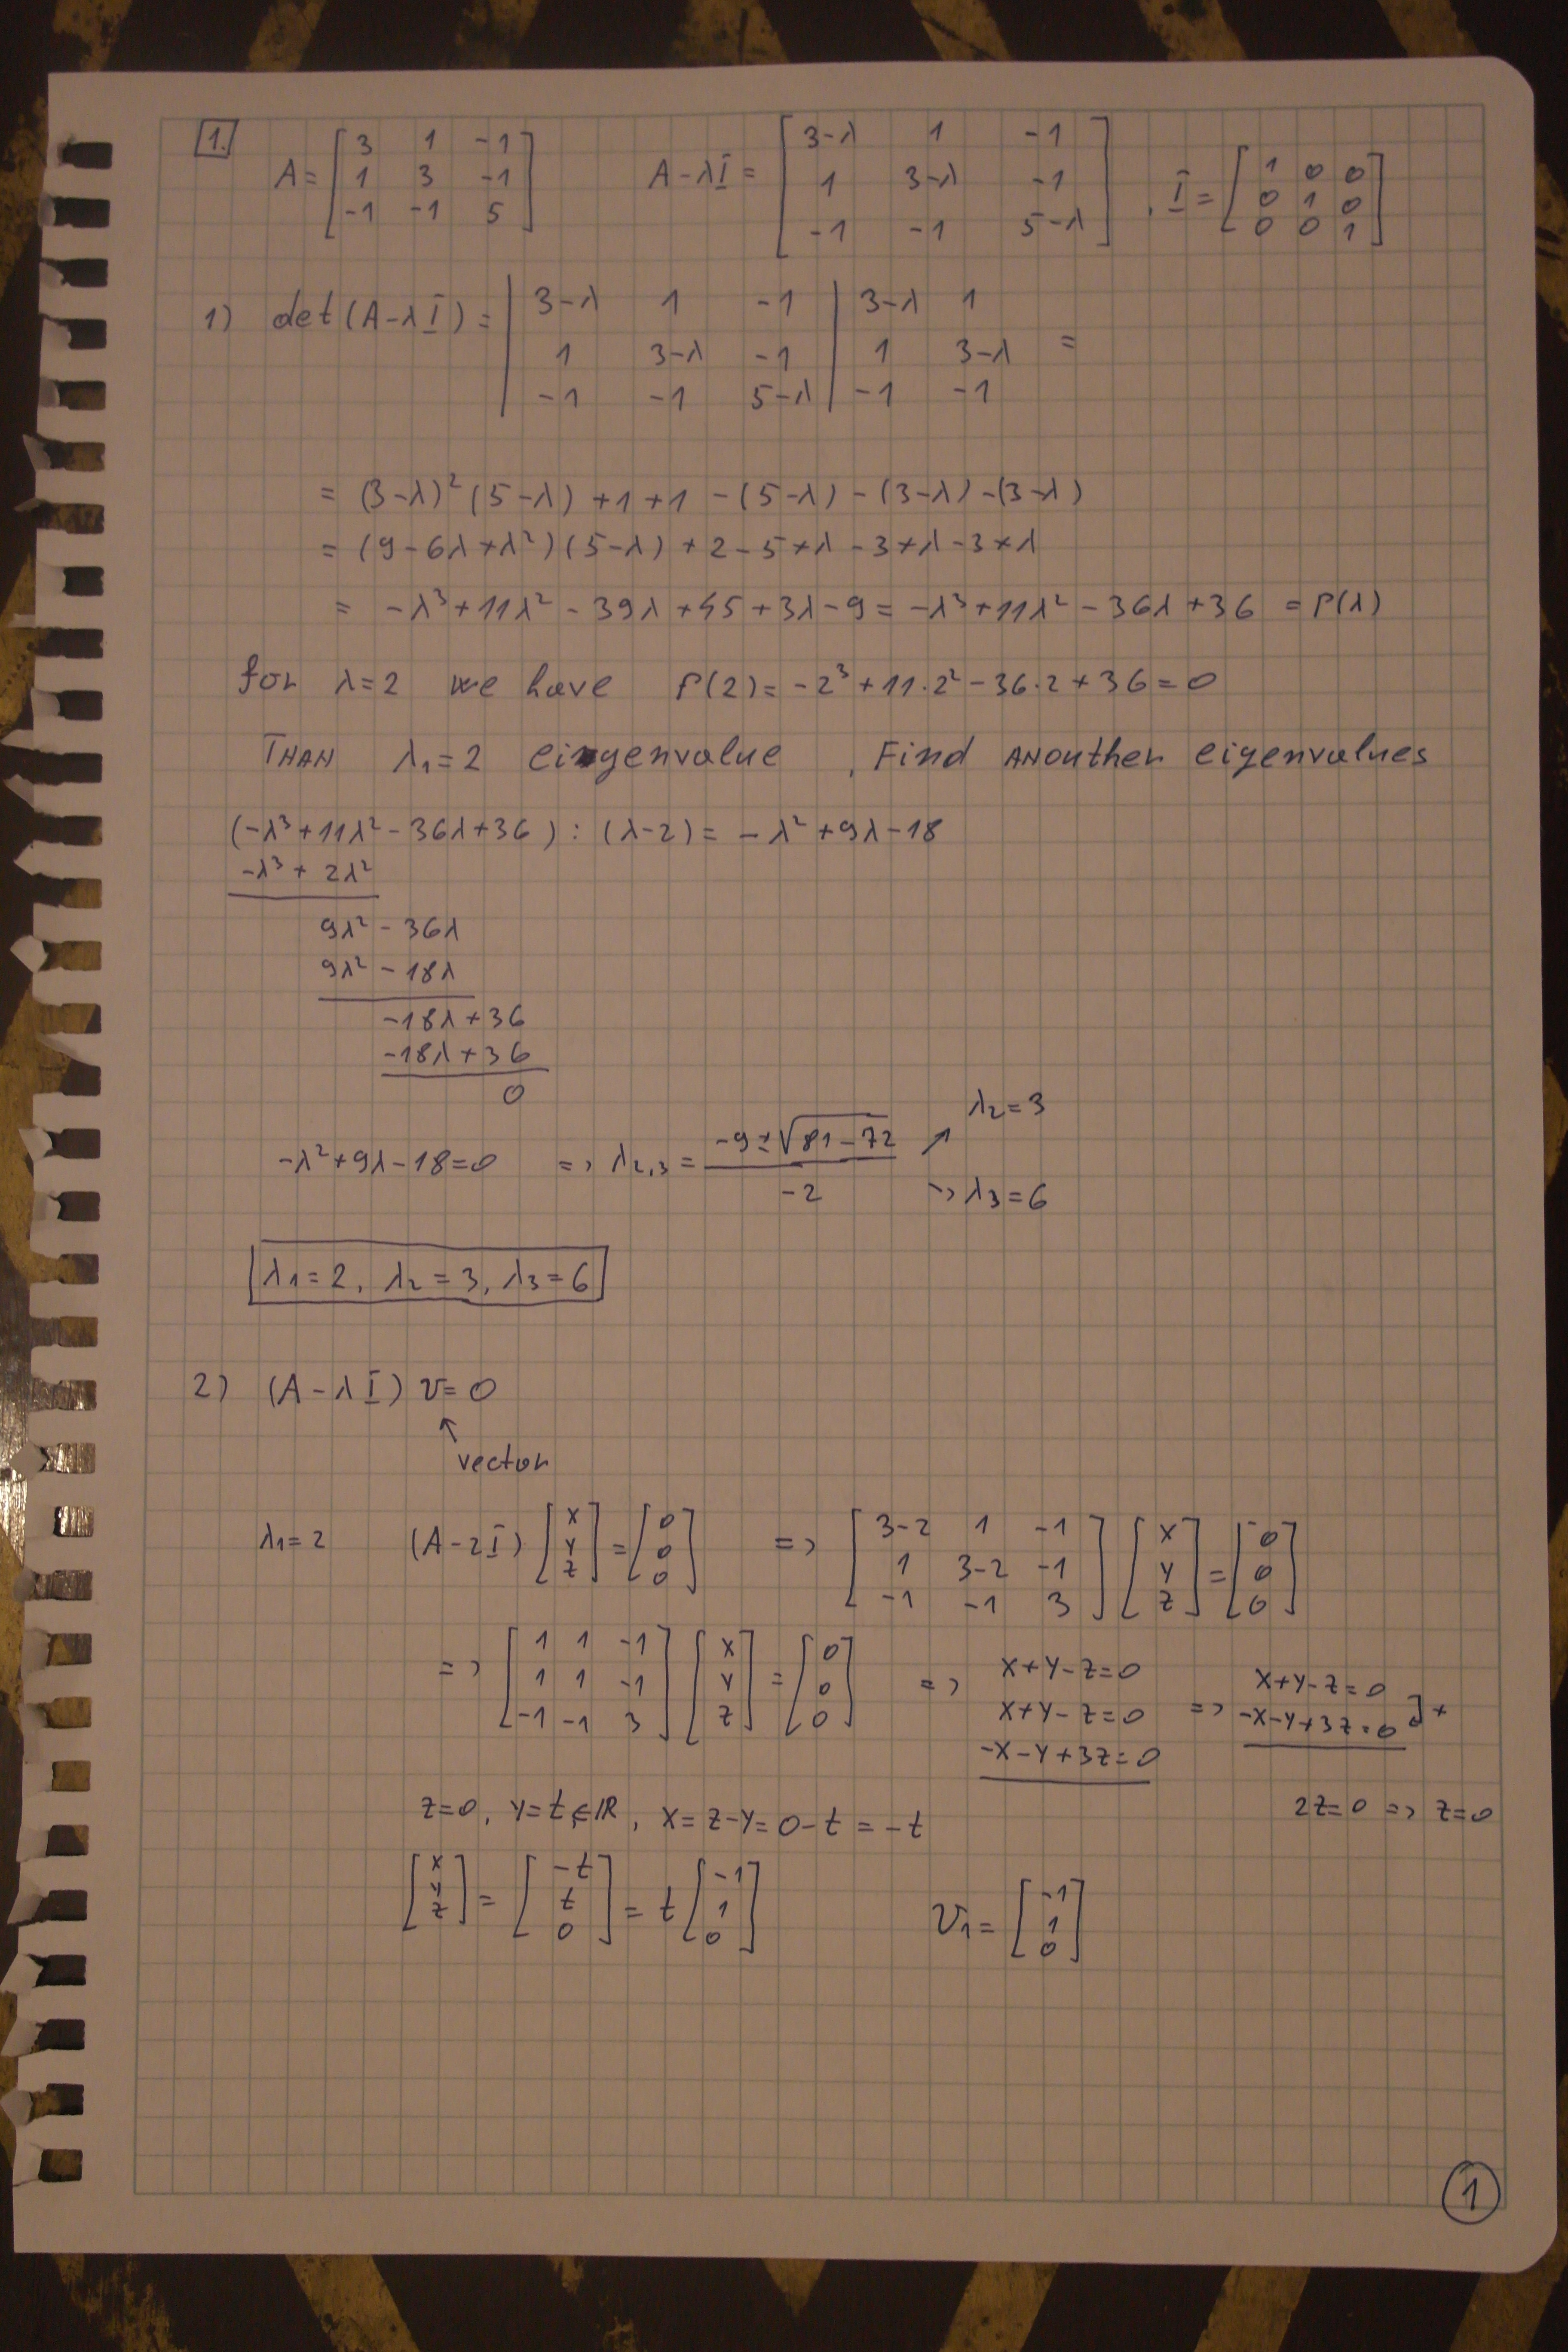 1.
A = [3 1 -1; 1 3 -1; -1 -1 5]   A-λI = [3-λ 1 -1; 1 3-λ -1; -1 -1 5-λ] , I = [1 0 0; 0 1 0; 0 0 1]
1) det(A-λI) = |3-λ 1 -1; 1 3-λ -1; -1 -1 5-λ| 3-λ 1; 1 3-λ; -1 -1 =
= (3-λ)²(5-λ)+1+1-(5-λ)-(3-λ)-(3-λ)
= (9-6λ+λ²)(5-λ)+2-5+λ-3+λ-3+λ
= -λ³+11λ²-39λ+45+3λ-9 = -λ³+11λ²-36λ+36 = P(λ)
for λ=2 we have P(2) = -2³+11·2²-36·2+36=0
THAN λ₁=2 eingenvalue , Find ANOuther eigenvalues
(-λ³+11λ²-36λ+36) : (λ-2) = -λ²+9λ-18
-λ³+2λ²
9λ²-36λ
9λ²-18λ
-18λ+36
-18λ+36
0
-λ²+9λ-18=0 => λ₂,₃ = (-9±√(81-72))/(-2) ↗ λ₂=3
→ λ₃=6
λ₁=2, λ₂=3, λ₃=6
2) (A-λI) v=0
↖
vector
λ₁=2 (A-2I)·[x; y; z] = [0; 0; 0] => [3-2 1 -1; 1 3-2 -1; -1 -1 3] [x; y; z] = [0; 0; 0]
=> [1 1 -1; 1 1 -1; -1 -1 3] [x; y; z] = [0; 0; 0] => x+y-z=0
x+y-z=0
-x-y+3z=0
=> x+y-z=0
-x-y+3z=0 ]+
z=0, y=t∈IR, x=z-y=0-t=-t   2z=0 => z=0
[x; y; z] = [-t; t; 0] = t[-1; 1; 0]   v₁ = [-1; 1; 0]
1